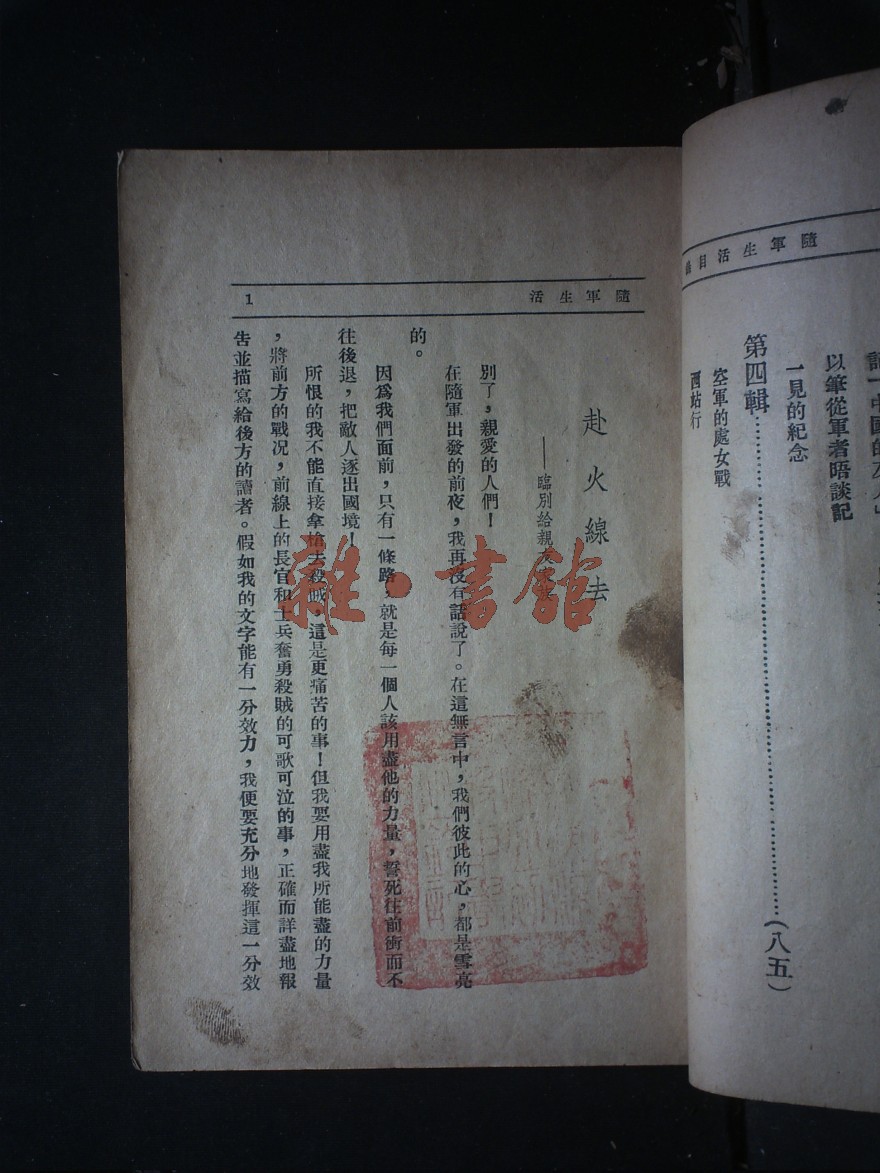 隨軍生活目
記「中國的友人」
以筆從軍者晤談記
一見的紀念
第四輯……(八五)
空軍的處女戰
西站行
隨軍生活
1
赴火線去
——臨別給親友
別了，親愛的人們！
在隨軍出發的前夜，我再沒有話說了。在這無言中，我們彼此的心，都是雪亮
的。
因爲我們面前，只有一條路，就是每一個人該用盡他的力量，誓死往前衝而不
往後退，把敵人逐出國境！
所恨的我不能直接拿槍去殺賊，這是更痛苦的事！但我要用盡我所能盡的力量
，將前方的戰況，前線上的長官和士兵奮勇殺賊的可歌可泣的事，正確而詳盡地報
告並描寫給後方的讀者。假如我的文字能有一分效力，我便要充分地發揮這一分效
雜·書館